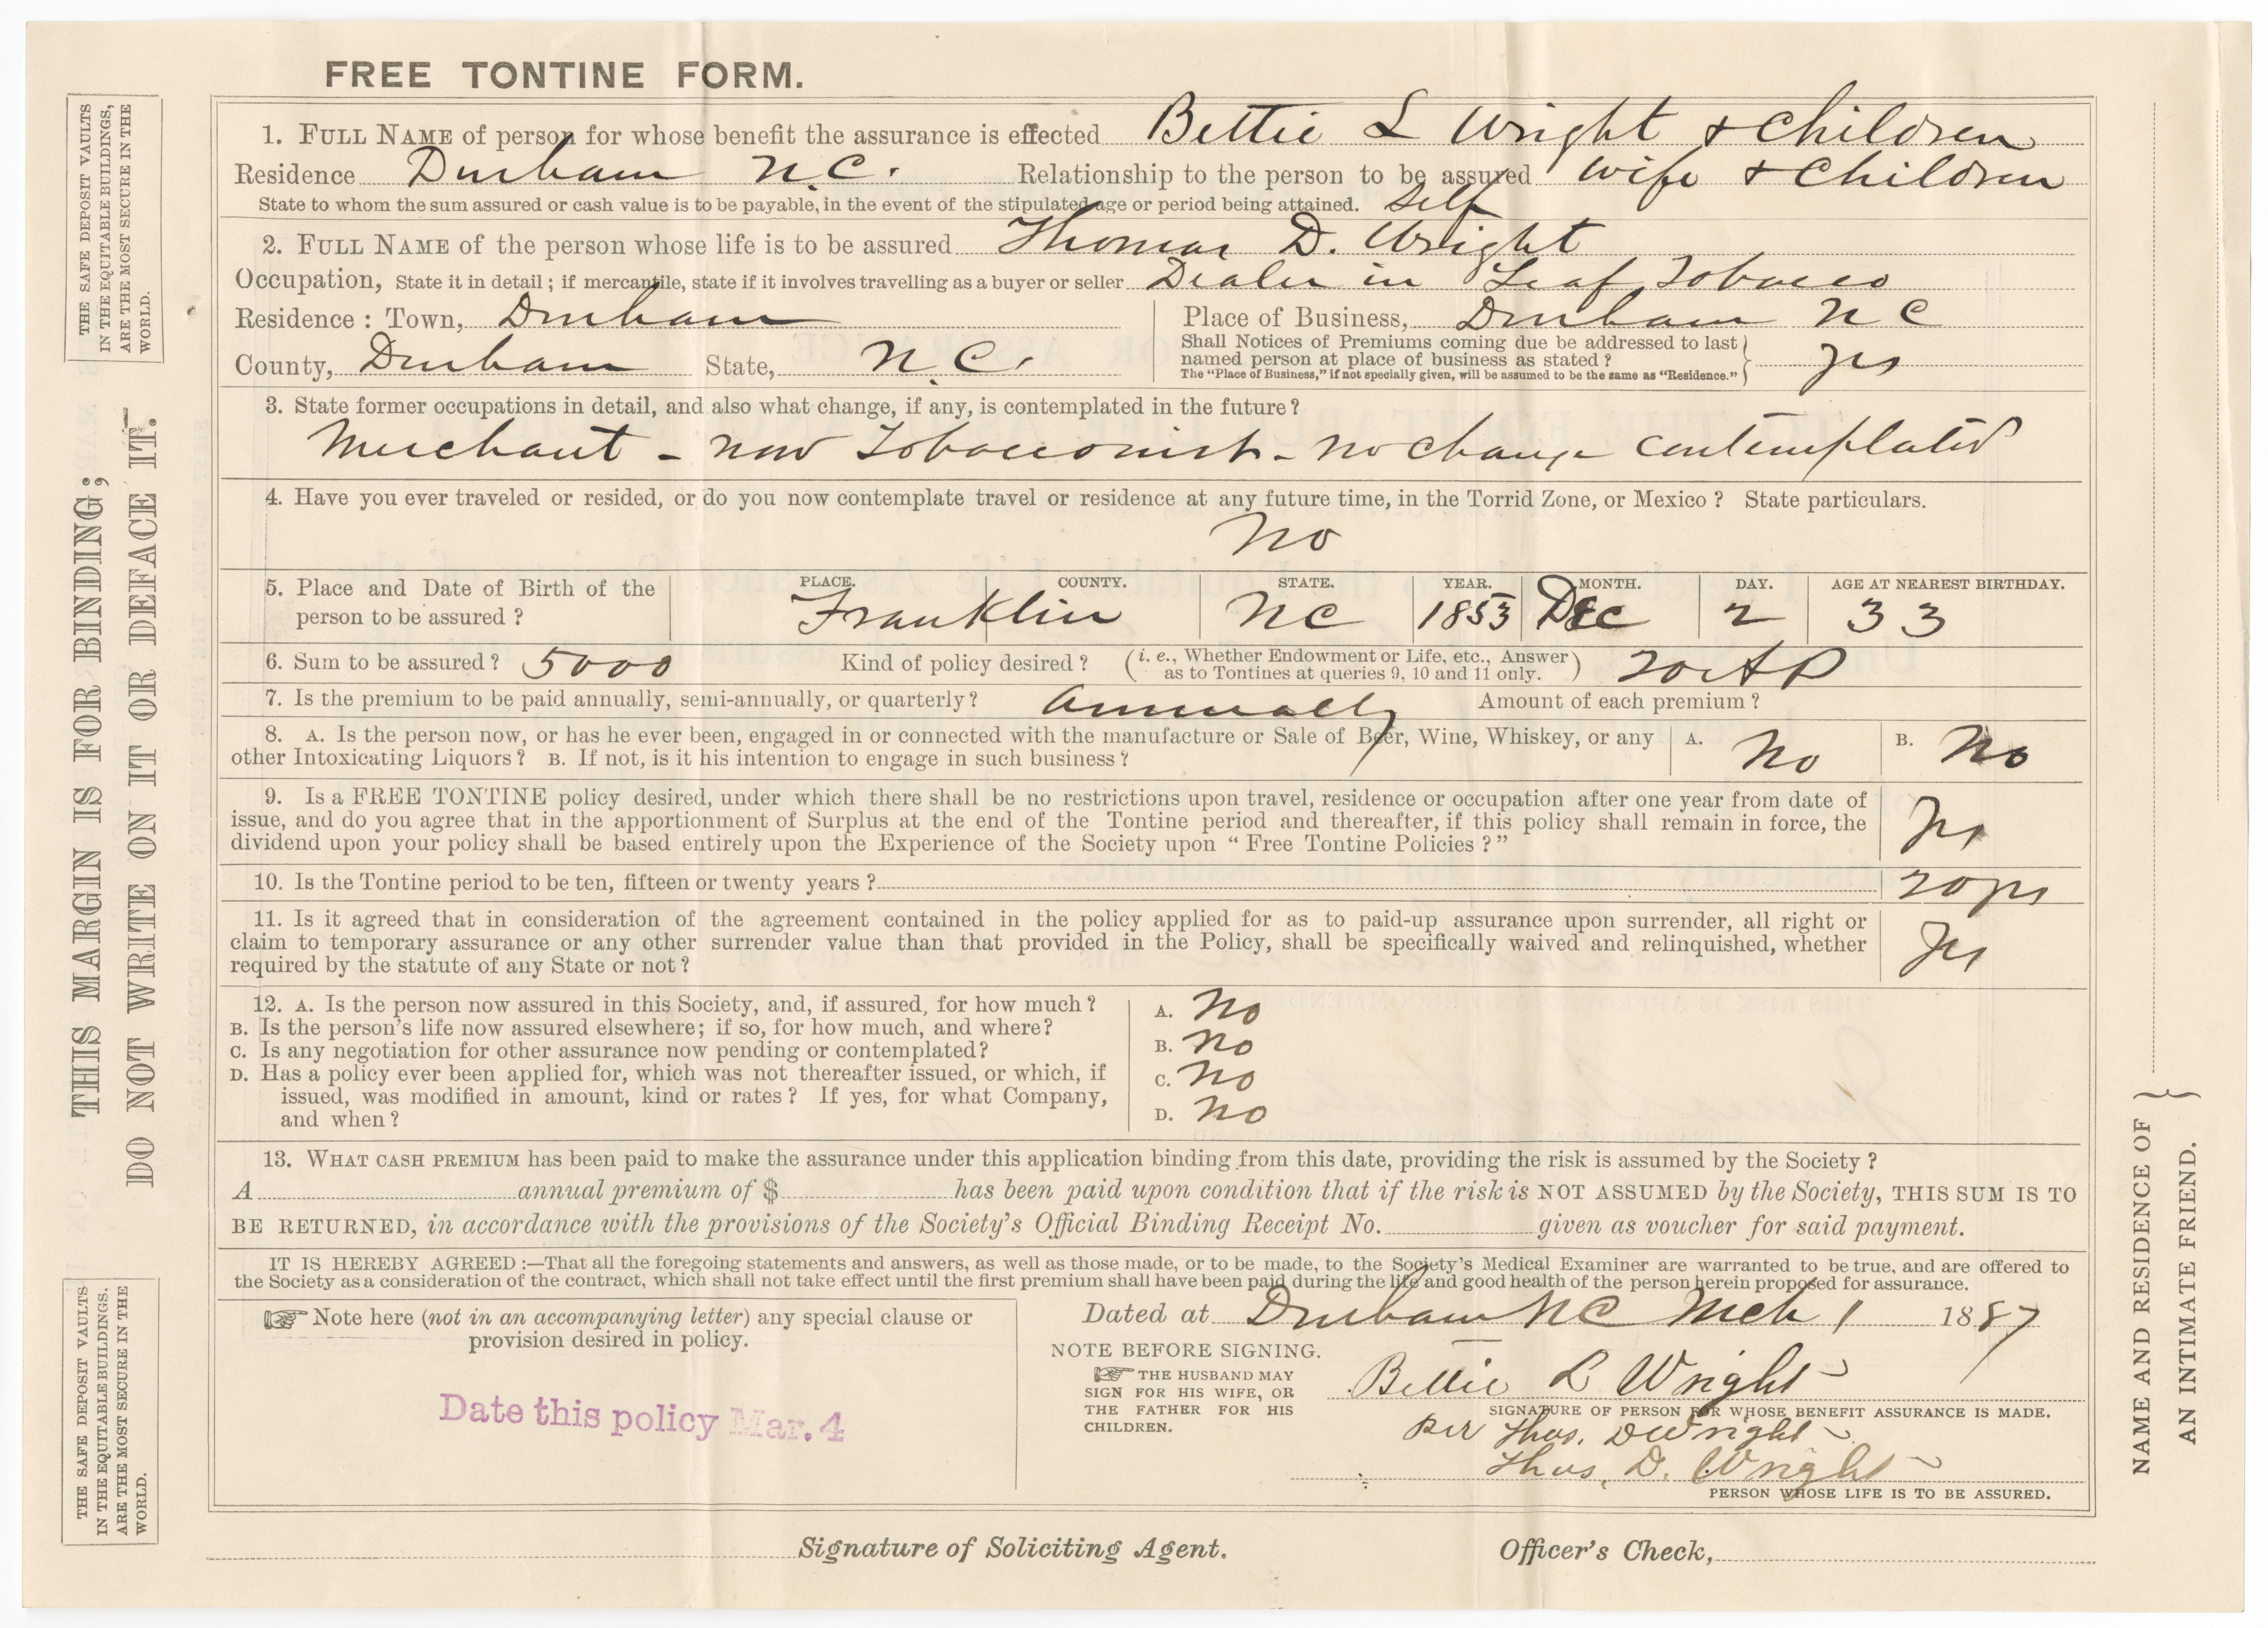 FREE TONTINE FORM.
1. FULL NAME of person for whose benefit the assurance is effected Bettie L Wright & Children
Residence Durham N.C. Relationship to the person to be assured Wife & Children
State to whom the sum assured or cash value is to be payable, in the event of the stipulated age or period being attained. Self
2. FULL NAME of the person whose life is to be assured Thomas D. Wright
Occupation, State it in detail ; if mercantile, state if it involves travelling as a buyer or seller Dealer in Leaf Tobacco
Residence : Town, Durham
Place of Business, Durham N C
County, Durham State, N.C.
Shall Notices of Premiums coming due be addressed to last
named person at place of business as stated ? yes
The "Place of Business," if not specially given, will be assumed to be the same as "Residence."
3. State former occupations in detail, and also what change, if any, is contemplated in the future ?
Merchant - now Tobacconist - no change contemplated
4. Have you ever traveled or resided, or do you now contemplate travel or residence at any future time, in the Torrid Zone, or Mexico ? State particulars.
No
5. Place and Date of Birth of the
person to be assured ?
PLACE. COUNTY. STATE. YEAR. MONTH. DAY. AGE AT NEAREST BIRTHDAY.
Franklin NC 1853 Dec 2 33
6. Sum to be assured ? 5000 Kind of policy desired ? (i. e., Whether Endowment or Life, etc., Answer
as to Tontines at queries 9, 10 and 11 only.)
7. Is the premium to be paid annually, semi-annually, or quarterly ? Annually Amount of each premium ?
8. A. Is the person now, or has he ever been, engaged in or connected with the manufacture or Sale of Beer, Wine, Whiskey, or any
other Intoxicating Liquors ? B. If not, is it his intention to engage in such business ?
A. No B. No
9. Is a FREE TONTINE policy desired, under which there shall be no restrictions upon travel, residence or occupation after one year from date of
issue, and do you agree that in the apportionment of Surplus at the end of the Tontine period and thereafter, if this policy shall remain in force, the
dividend upon your policy shall be based entirely upon the Experience of the Society upon " Free Tontine Policies ? "
yes
10. Is the Tontine period to be ten, fifteen or twenty years ? 20 yrs
11. Is it agreed that in consideration of the agreement contained in the policy applied for as to paid-up assurance upon surrender, all right or
claim to temporary assurance or any other surrender value than that provided in the Policy, shall be specifically waived and relinquished, whether
required by the statute of any State or not ?
yes
12. A. Is the person now assured in this Society, and, if assured, for how much ?
A. No
B. Is the person's life now assured elsewhere; if so, for how much, and where?
B. No
C. Is any negotiation for other assurance now pending or contemplated?
C. No
D. Has a policy ever been applied for, which was not thereafter issued, or which, if
issued, was modified in amount, kind or rates ? If yes, for what Company,
and when ?
D. No
13. WHAT CASH PREMIUM has been paid to make the assurance under this application binding from this date, providing the risk is assumed by the Society ?
A annual premium of $ has been paid upon condition that if the risk is NOT ASSUMED by the Society, THIS SUM IS TO
BE RETURNED, in accordance with the provisions of the Society's Official Binding Receipt No. given as voucher for said payment.
IT IS HEREBY AGREED :—That all the foregoing statements and answers, as well as those made, or to be made, to the Society's Medical Examiner are warranted to be true, and are offered to
the Society as a consideration of the contract, which shall not take effect until the first premium shall have been paid during the life and good health of the person herein proposed for assurance.
Note here (not in an accompanying letter) any special clause or
provision desired in policy.
Date this policy Mar. 4
Dated at Durham NC Mch 1 1887
NOTE BEFORE SIGNING.
THE HUSBAND MAY
SIGN FOR HIS WIFE, OR
THE FATHER FOR HIS
CHILDREN.
Bettie L Wright
SIGNATURE OF PERSON FOR WHOSE BENEFIT ASSURANCE IS MADE.
Per Thos. D Wright
Thos. D. Wright
PERSON WHOSE LIFE IS TO BE ASSURED.
Signature of Soliciting Agent. Officer's Check,
THE SAFE DEPOSIT VAULTS
IN THE EQUITABLE BUILDINGS,
ARE THE MOST SECURE IN THE
WORLD.
THIS MARGIN IS FOR BINDING;
DO NOT WRITE ON IT OR DEFACE IT.
THE SAFE DEPOSIT VAULTS
IN THE EQUITABLE BUILDINGS.
ARE THE MOST SECURE IN THE
WORLD.
NAME AND RESIDENCE OF
AN INTIMATE FRIEND.